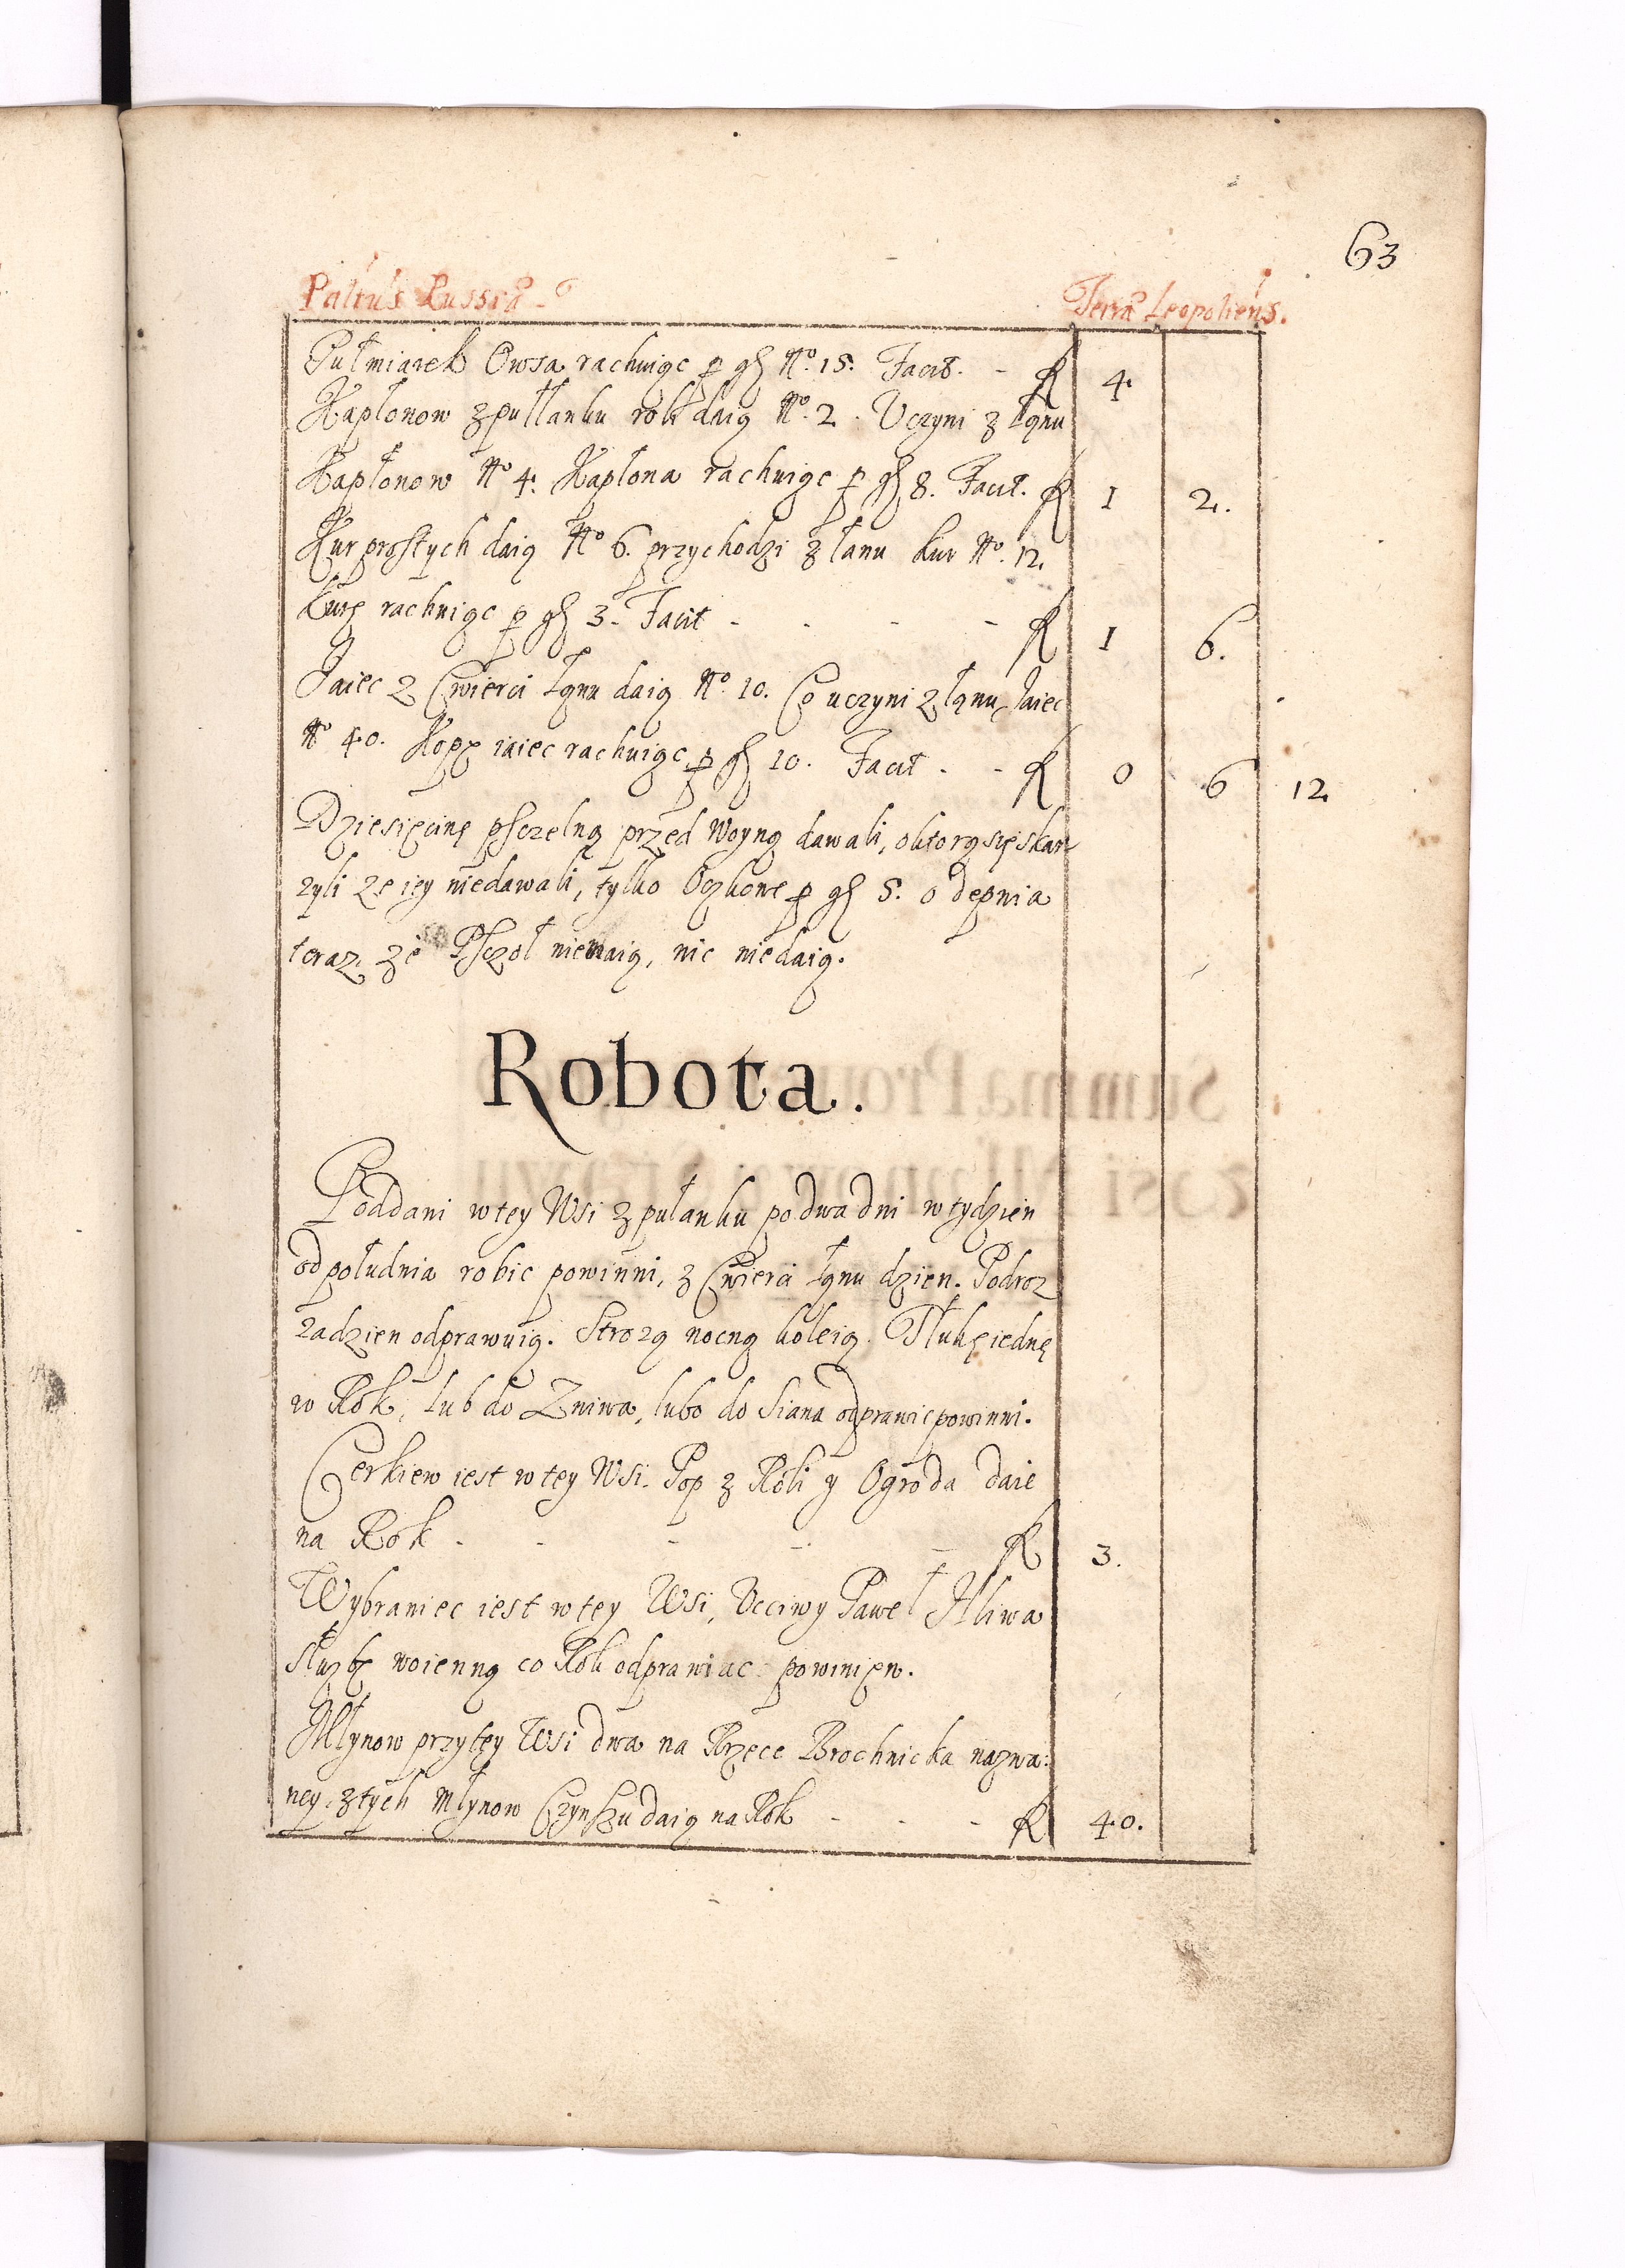 63
Paltus Russiæ
Terræ Leopoliens.
Pułmiarek Owsa rachuiąc p gſ No. 15. Facit. - R 4.
Kapłonow z pułłanku roli daią No. 2. Uczyni z łąnu
Kapłonow No 4. Kapłona rachuiąc p gſ 8. Facit. R 1 2.
Kur prostych daią No 6. przychodzi z łanu kur No. 12.
Kurę rachuiąc p gſ 3. Facit - - - - R 1 6.
Jaiec z Cwierci łąnu daią No. 10. Co uczyni z łąnu Jaiec
No 40. Kopę iaiec rachuiąc p gſ 10. Facit - - R 0 6 12
Dziesięcinę pſczelną przed Woyną dawali, o ktorą się skar
zyli ze iey niedawali, tylko Oczkowe p gſ 5. o depnia
teraz ze Pſczoł niemaią, nic niedaią.
Robota.
Poddani w tey Wsi z pułanku po dwa dni w tydzien
od południa robic powinni, z Cwierci łąnu dzien. Podroz
za dzien odprawuią. Strozą nocną koleią. Tłukę iednę
w Rok, lub do Zniwa, lubo do Siana odprawic powinni.
Cerkiew iest w tey Wsi. Pop z Roli y Ogroda daie
na Rok - - - - - R 3.
Wybraniec iest w tey Wsi, Ucciwy Paweł Hliwa
służbę woienną co Rok odprawiac powinien.
Młynow przy tey Wsi dwa na Rzece Brochnicka nazwa:
ney, z tych Młynow Czynſzu daią na Rok - - - R 40.